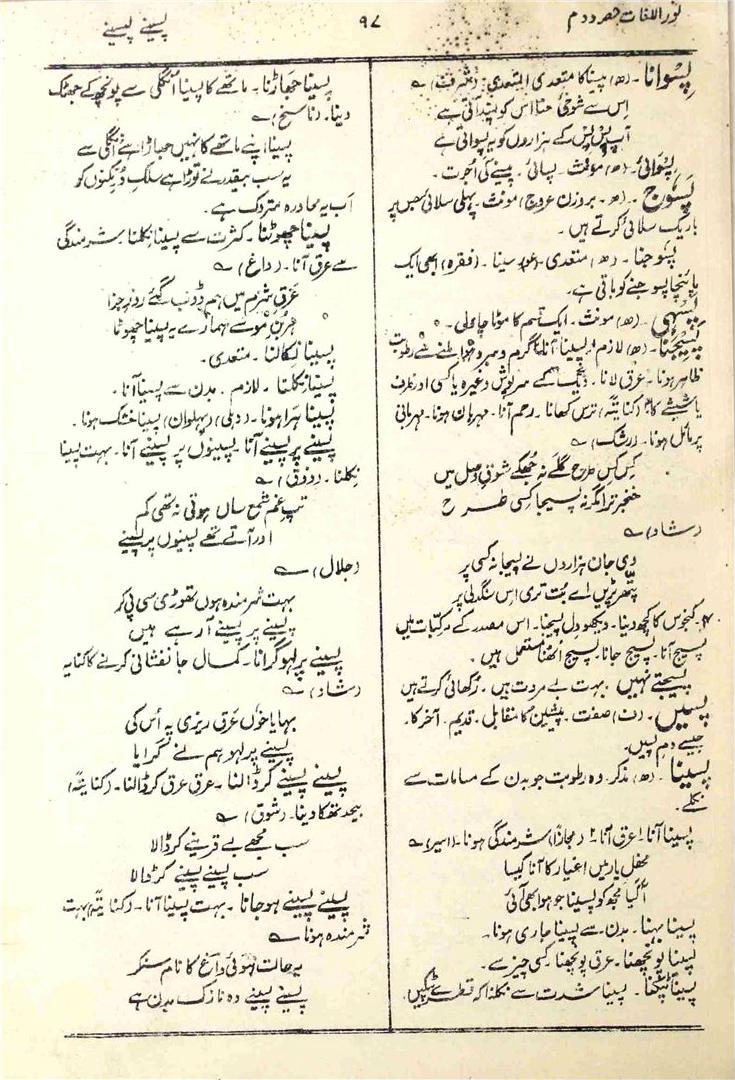 نور اللغات حصہ دوم
۹۷
پسینے پسینے
پِسْوانا۔ (ھ) پیسنا کا متعدی المتعدی۔ (شرف)
اِس سے شوخیٔ حنا اس کو پسند آتی ہے
آپ پِس پِس کے ہزاروں کو یہ پسواتی ہے
پِسْوائی۔ (ھ) مونث۔ پسائی۔ پیسنے کی اُجرت۔
پَسُوج۔ (ھ۔ بروزن عروج) مونث۔ پہلی سلائی جس پر
باریک سلائی کرتے ہیں۔
پسُوجنا۔ (ھ) متعدی۔ (عو) سینا۔ (فقرہ) ابھی ایک
پائنچا پسوجنے کو باقی ہے۔
پَسَہی۔ (ھ) مونث۔ ایک قسم کا موٹا چاول۔
پَسِیجْنا۔ (ھ) لازم ۱۔ پسینا آنا۔ گرم و مرطوب ہوا ملنے سے رطوبت
ظاہر ہونا۔ عرق لانا۔ دیگ کے سرپوش وغیرہ یا کسی اور ظرف
یا شیشے کا ۲۔ (کنایتہً) ترس کھانا۔ رحم آنا۔ مہربان ہونا۔ مہربانی
پر مائل ہونا۔ (رشک)
کِس کِس طرح گلے نہ جُھکے شوقِ وصل میں
خنجر ترا مگر نہ پسیجا کسی طرح
(شاد)
دی جان ہزاروں نے پسیجا نہ کسی پر
پتھر پڑیں اے بُت تری اس سنگدلی پر
۳۔ کنجوس کا کچھ دینا۔ دیکھو دل پسیجنا۔ اس مصدر کے مرکّبات میں
پسیج آنا۔ پسیج جانا۔ پسیج اٹھنا مستعمل ہیں۔
پسیجتے نہیں۔ بہت بے مروت ہیں۔ رُکھائی کرتے ہیں
پَسِیں۔ (ف) صفت۔ پیشین کا مقابل۔ قدیم۔ آخر کا۔
جیسے دمِ پسیں۔
پسینا۔ (ھ) مذکر۔ وہ رطوبت جو بدن کے مسامات سے
نکلے۔
پسینا آنا۔ ۱۔ عرق آنا۔ ۲۔ (مجازاً) شرمندگی ہونا۔ (اسیر)
محفل یار میں اغیار کا آنا کیسا
آگیا مجھ کو پسینا جو ہوا بھی آئی
پسینا بہنا۔ بدن سے پسینا جاری ہونا۔
پسینا پونچھنا۔ عرق پونچھنا کسی چیز سے۔
پسینا ٹپکنا۔ پسینا شدت سے نکلنا کہ قطرے ٹپکیں۔
پسینا جھاڑنا۔ ماتھے کا پسینا اُنگلی سے پونچھ کے جھٹک
دینا۔ (ناسخ)
پسینا اپنے ماتھے کا نہیں جھاڑا اُسے اُنگلی سے
یہ سب بیقدر نے توڑا ہے سلکِ دُر مکنوں کو
اب یہ محاورہ متروک ہے۔
پسینا چھوٹنا۔ کثرت سے پسینا نکلنا۔ شرمندگی
سے عرق آنا۔ (داغ)
عَرَقِ شرم میں ہم ڈوب گئے روزِ جزا
ہر بُنِ مُو سے ہمارے یہ پسینا چھوٹا
پسینا نکالنا۔ متعدی۔
پسینا نکلنا۔ لازم۔ بدن سے پسینا آنا۔
پسینا ہرا ہونا۔ (دہلی) (پہلوان) پسینا خشک ہونا۔
پسینے پر پسینے آنا۔ پسینوں پر پسینے آنا۔ بہت پسینا
نکلنا۔ (ذوق)
تپِ غم شمع ساں ہوتی نہ تھی کم
اور آتے تھے پسینوں پر پسینے
(جلال)
بہت شرمندہ ہوں تھوڑی سی پی کر
پسینے پر پسینے آ رہے ہیں
پسینے پر لہو گرانا۔ کمال جانفشانی کرنے کا کنایہ
(شاد)
بہایا خوں عَرَق ریزی پہ اُس کی
پسینے پر لہو ہم نے گرایا
پسینے پسینے کر ڈالنا۔ عرق عرق کر ڈالنا۔ (کنایتہً)
بیحد تھکا دینا۔ (شوق)
سب مجھے بے قرینے کر ڈالا
سب پسینے پسینے کر ڈالا
پسینے پسینے ہوجانا۔ بہت پسینا آنا۔ (کنایتہً) بہت
شرمندہ ہونا
یہ حالت ہوئی داغ کا نام سنکر
پسینے پسینے وہ نازک بدن ہے